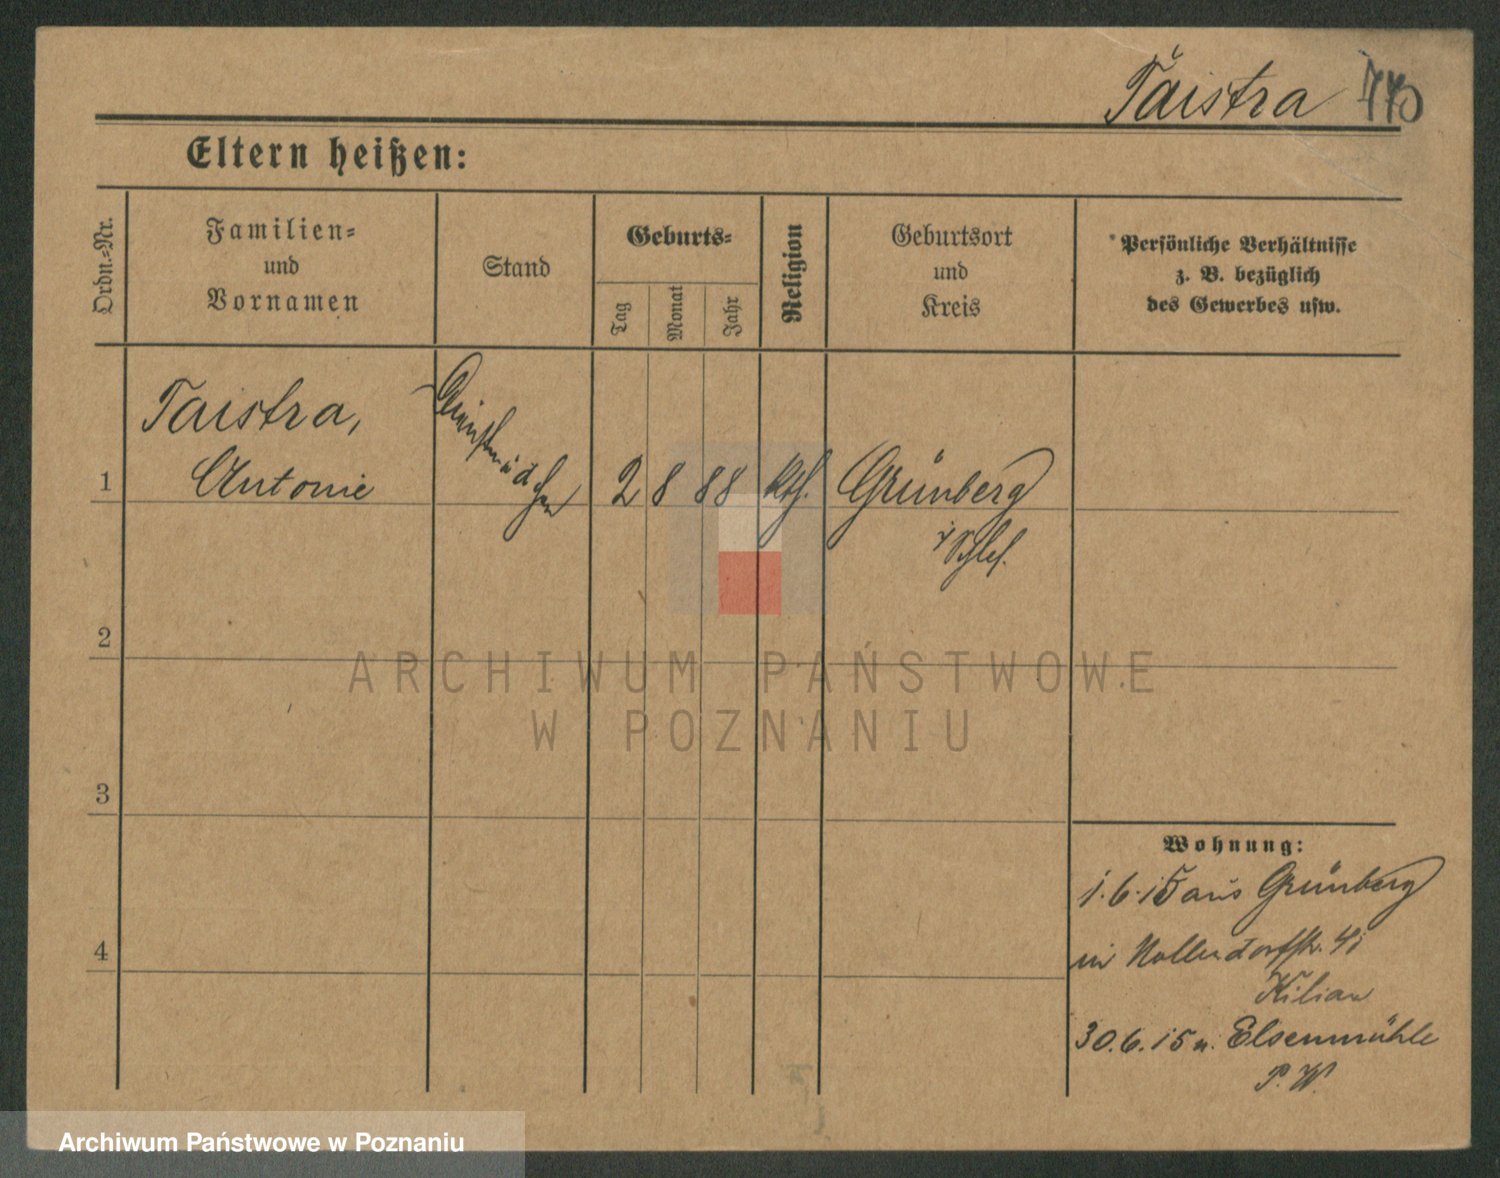 Taistra 770
Eltern heißen:
Ordn.-Nr.
Familien-
und
Vornamen
Stand
Geburts-
Tag
Monat
Jahr
Religion
Geburtsort
und
Kreis
Persönliche Verhältnisse
z. B. bezüglich
des Gewerbes usw.
Taistra,
1 Antonie
Dienstmädchen
2 8 88 kth. Grünberg
i/Schles.
2
3
4
Wohnung:
1.6.15 aus Grünberg
in Nollendorfstr. 41
Kilian
30.6.15 n. Elsenmühle
P. W
ARCHIWUM PAŃSTWOWE
W POZNANIU
Archiwum Państwowe w Poznaniu